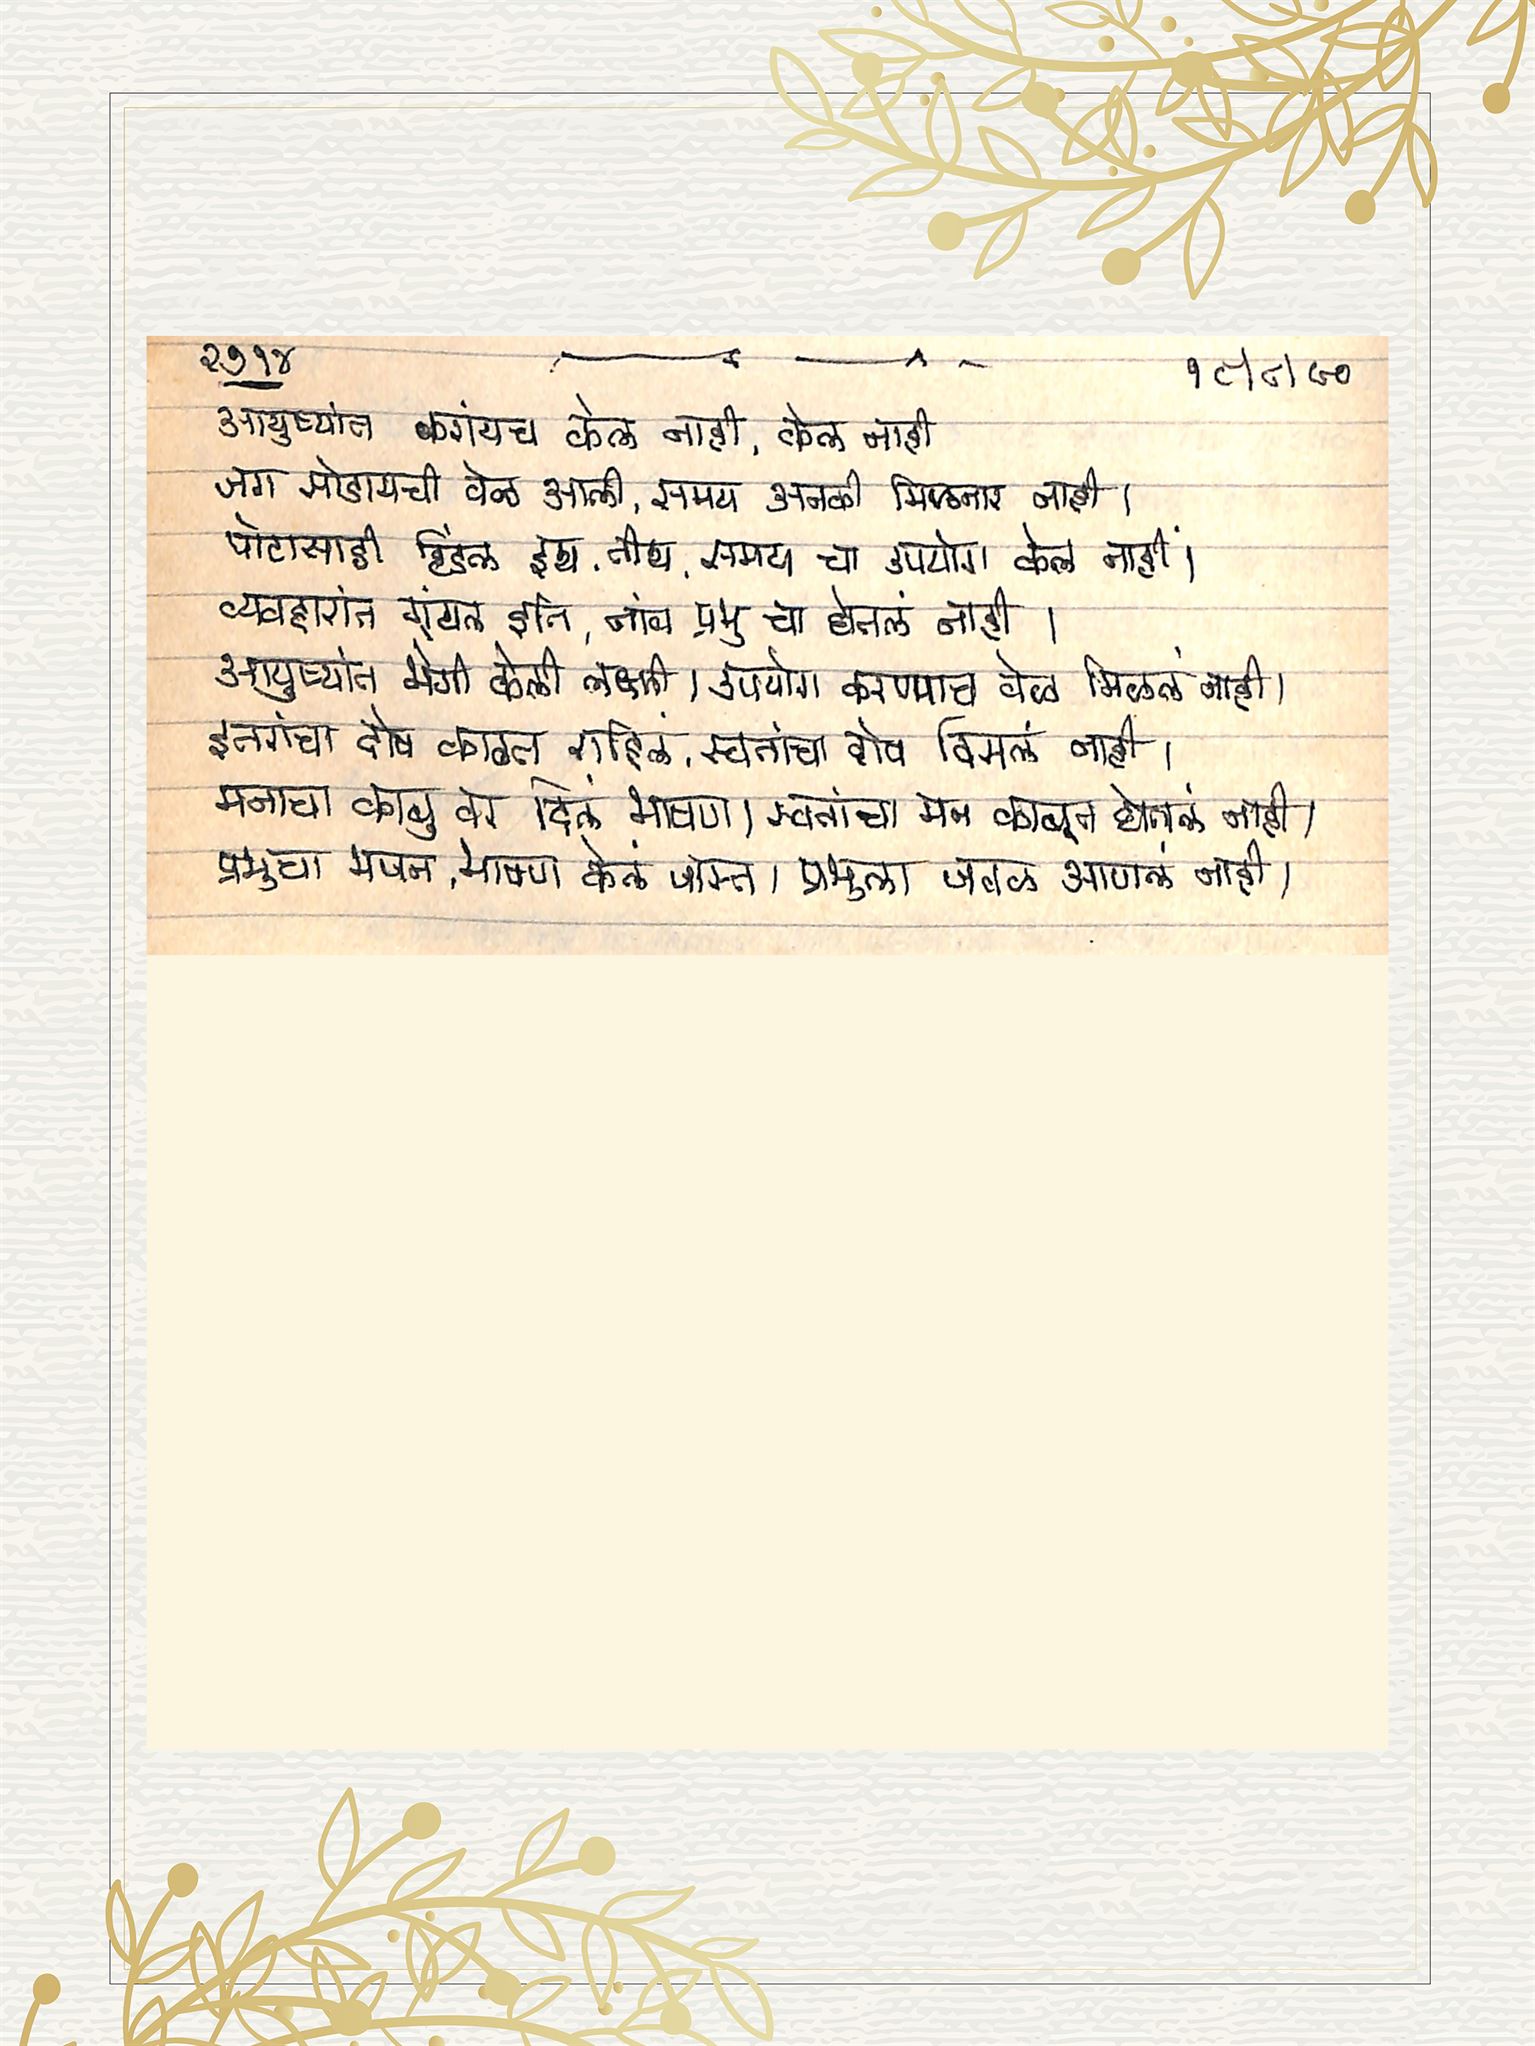 २७१४ १८/८/७०
आयुष्यांत करांयच केल नाही, केल नाही
जग सोडायची वेळ आली, समय अनकी मिळनार नाही।
पोटासाठी हिंडल इथ. तीथ. समय चा उपयोग केल नाहीं।
व्यवहारांत गुंयल इति, नांव प्रभु चा घेतलं नाही।
आयुष्यांत केली लक्ष्मी। उपयोग करण्याच वेळ मिळलं नाही।
इतरांचा दोष काढत राहिलं. स्वतांचा दोष दिसलं नाही।
मनाचा काबु वर दिलं भाषण। स्वतांचा मन काबूत घेतलं नाही।
प्रभुचा भजन, भाषण केलं जास्त। प्रभुला जवळ आणलं नाही।